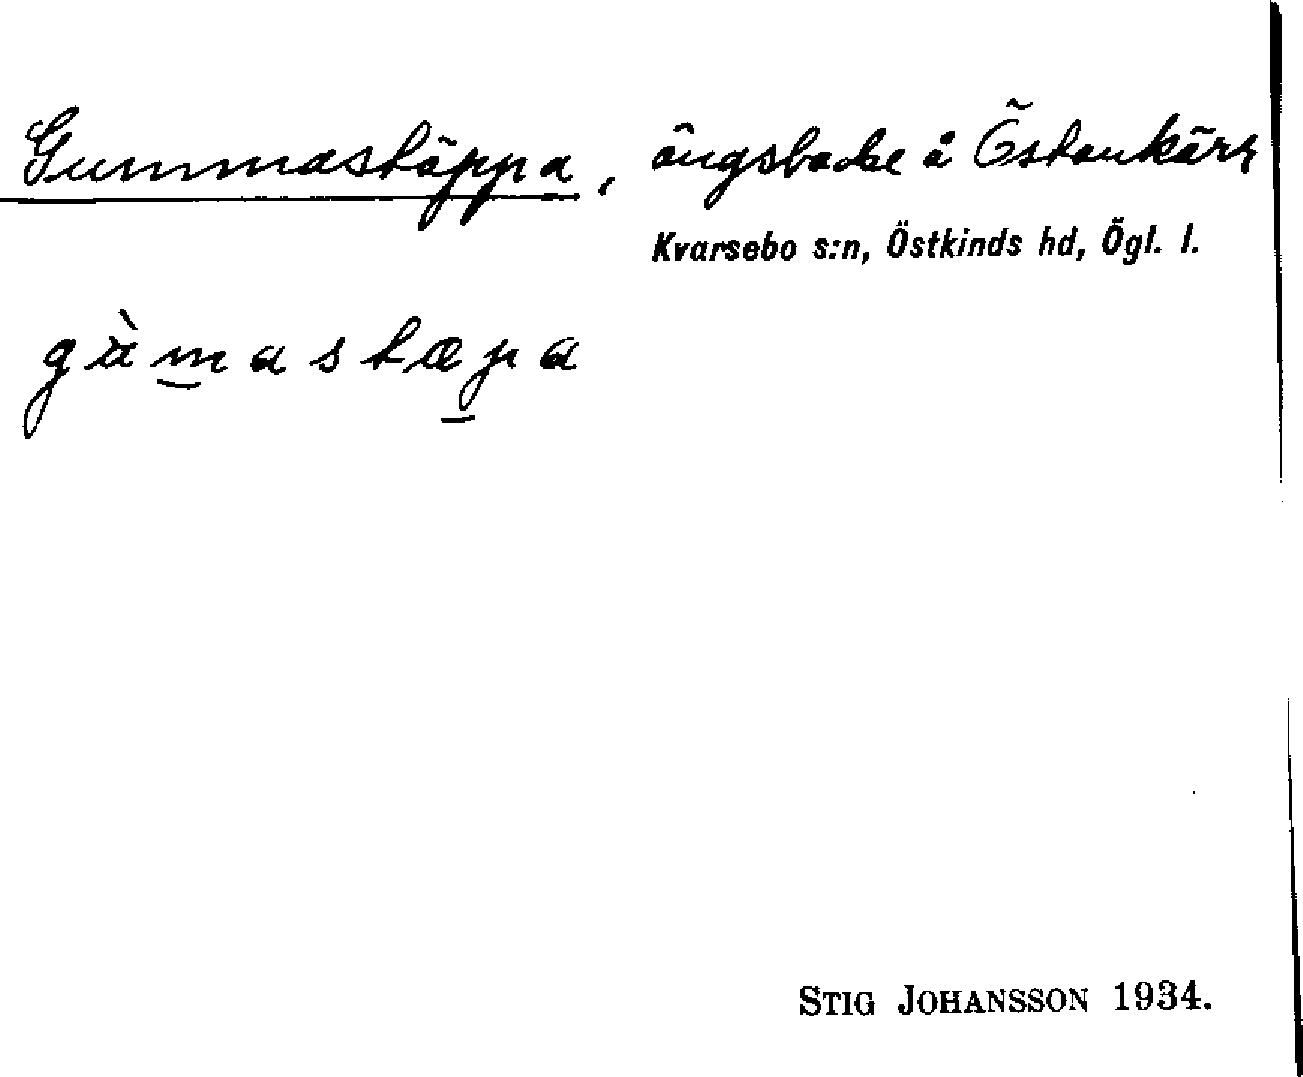 Gummastäppa, ängsbacke å Östankärr
Kvarsebo s:n, Östkinds hd, Ögl. l.
gùmastæpa
STIG JOHANSSON 1934.